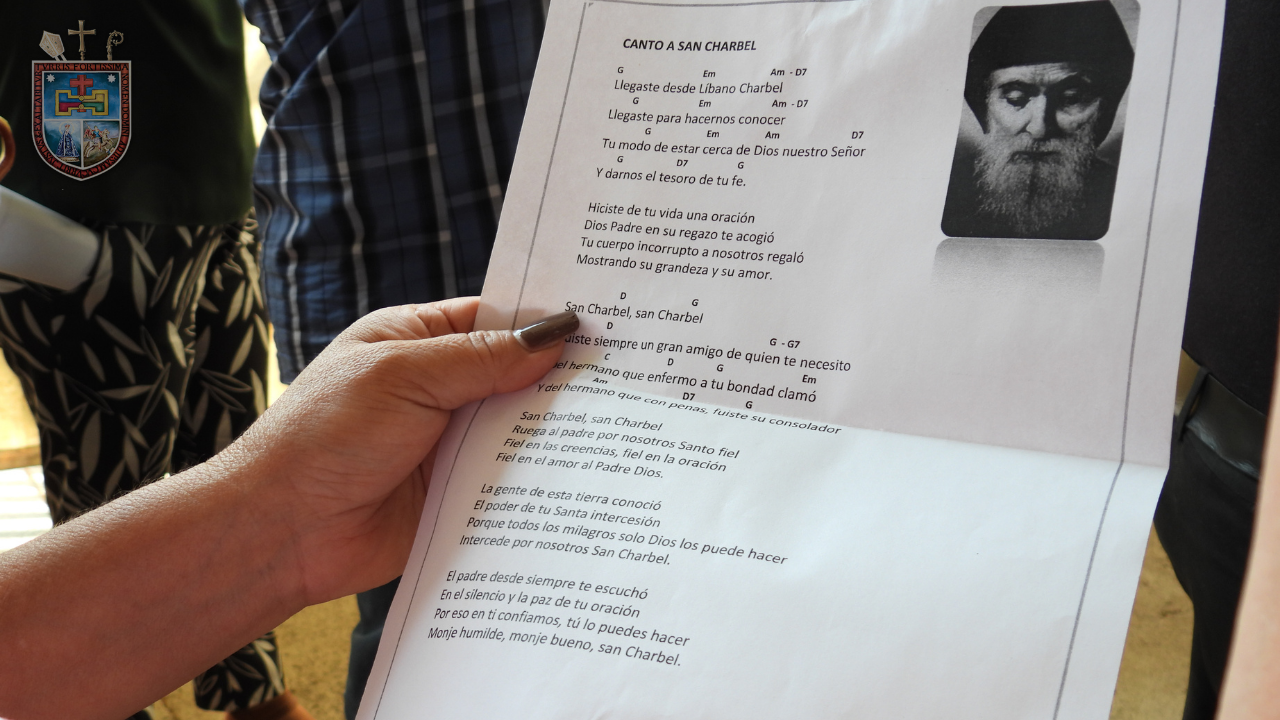 CANTO A SAN CHARBEL
G Em Am - D7
Llegaste desde Líbano Charbel
G Em Am - D7
Llegaste para hacernos conocer
G Em Am D7
Tu modo de estar cerca de Dios nuestro Señor
G D7 G
Y darnos el tesoro de tu fe.
Hiciste de tu vida una oración
Dios Padre en su regazo te acogió
Tu cuerpo incorrupto a nosotros regaló
Mostrando su grandeza y su amor.
D G
San Charbel, san Charbel
D G - G7
siempre un gran amigo de quien te necesito
C D G Em
hermano que enfermo a tu bondad clamó
Am D7 G
Y del hermano que con penas, fuiste su consolador
San Charbel, san Charbel
Ruega al padre por nosotros Santo fiel
Fiel en las creencias, fiel en la oración
Fiel en el amor al Padre Dios.
La gente de esta tierra conoció
El poder de tu Santa intercesión
Porque todos los milagros solo Dios los puede hacer
Intercede por nosotros San Charbel.
El padre desde siempre te escuchó
En el silencio y la paz de tu oración
Por eso en ti confiamos, tú lo puedes hacer
Monje humilde, monje bueno, san Charbel.